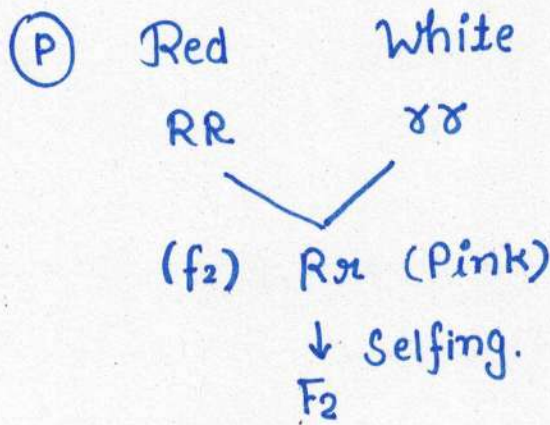 P Red White
RR rr
(f2) Rr (Pink)
↓ Selfing.
F2